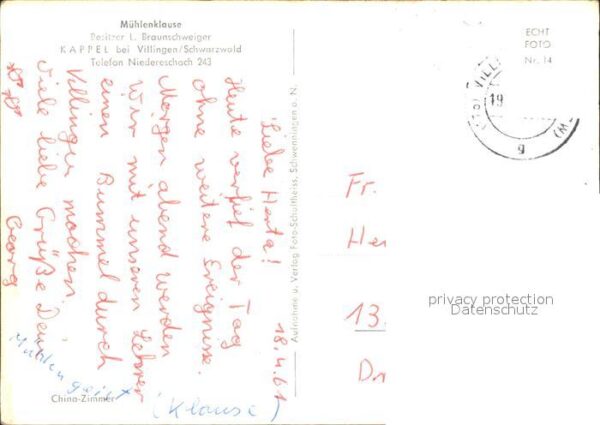 Mühlenklause
Besitzer L. Braunschweiger
KAPPEL bei Villingen/Schwarzwald
Telefon Niedereschach 243
ECHT
FOTO
Nr. 14
18.4.61
Liebe Herta!
Heute verlief der Tag
ohne weitere Ereignisse.
Morgen abend werden
wir mit unseren Lehrer
einen Bummel durch
Villingen machen.
Viele liebe Grüße Dein
Georg
Mühlengeist
(Klause)
China-Zimmer
Aufnahme u. Verlag Foto-Schultheiss, Schwenningen a. N.
VILL
19
g
Fr.
He
13.
privacy protection
Datenschutz